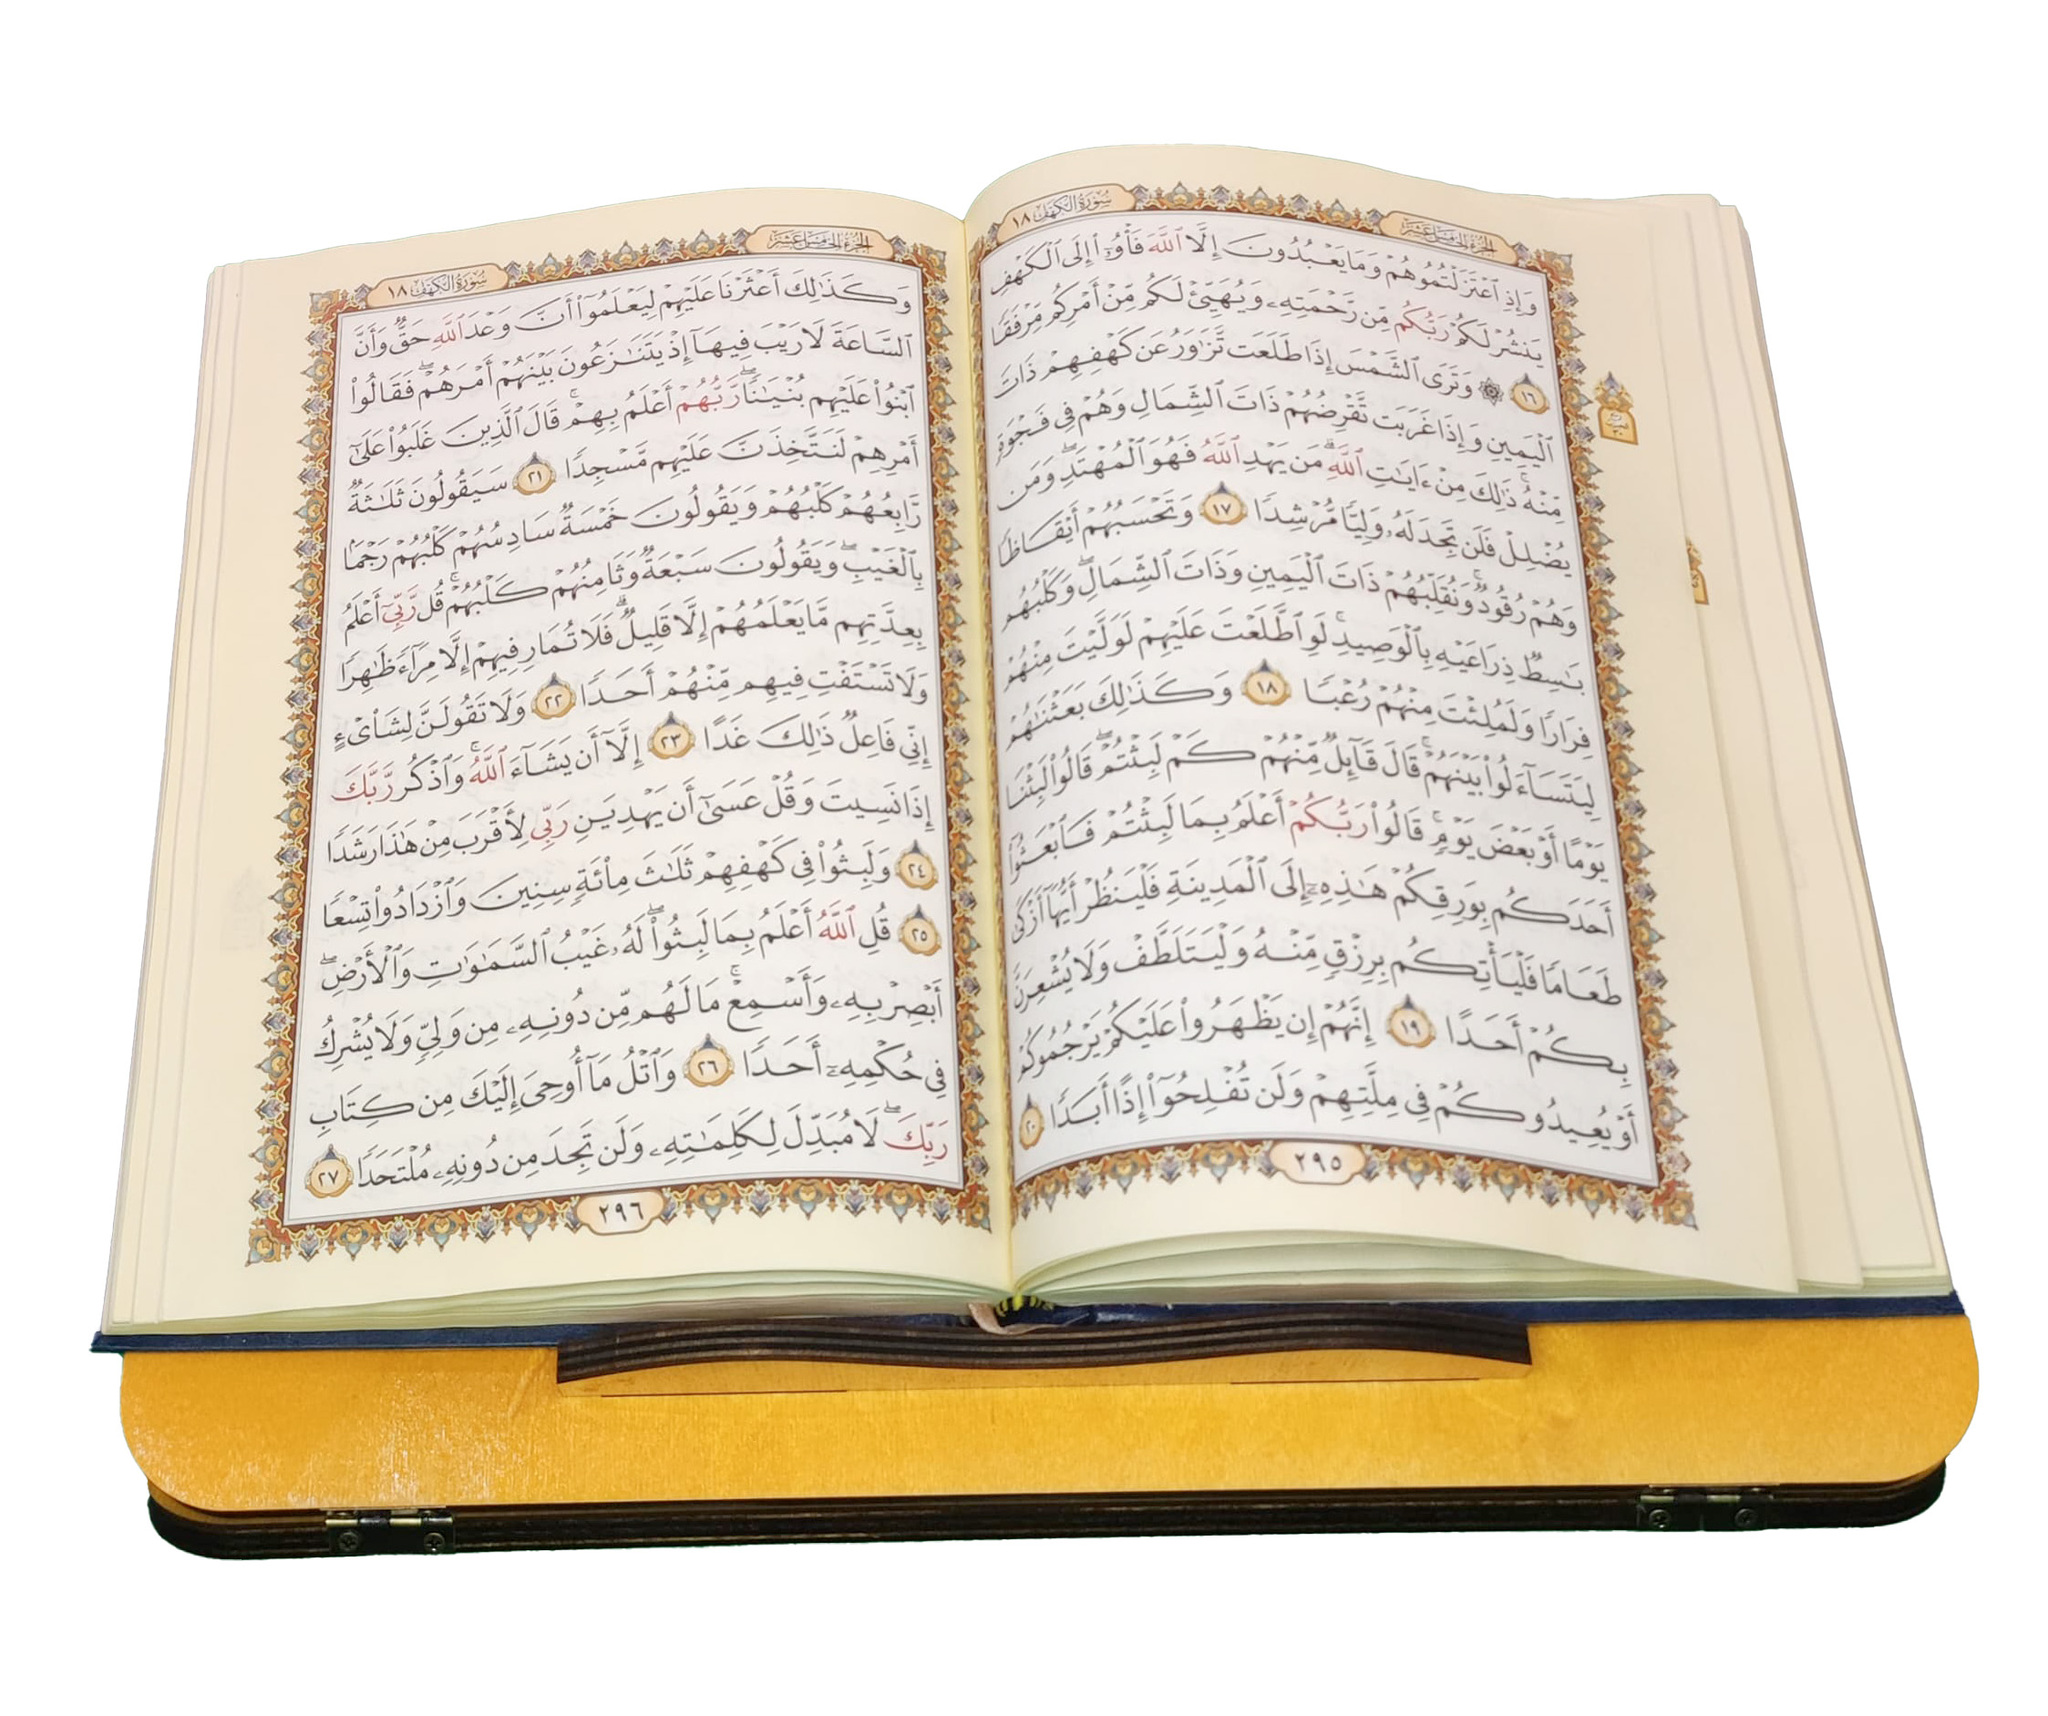 سُورَةُ الكَهْف ١٨
الجُزْءُ الخَامِسَ عَشَرَ
وَإِذِ ٱعۡتَزَلۡتُمُوهُمۡ وَمَا يَعۡبُدُونَ إِلَّا ٱللَّهَ فَأۡوُۥٓاْ إِلَى ٱلۡكَهۡفِ
يَنشُرۡ لَكُمۡ رَبُّكُم مِّن رَّحۡمَتِهِۦ وَيُهَيِّئۡ لَكُم مِّنۡ أَمۡرِكُم مِّرۡفَقٗا
١٦ ۞ وَتَرَى ٱلشَّمۡسَ إِذَا طَلَعَت تَّزَٰوَرُ عَن كَهۡفِهِمۡ ذَاتَ
ٱلۡيَمِينِ وَإِذَا غَرَبَت تَّقۡرِضُهُمۡ ذَاتَ ٱلشِّمَالِ وَهُمۡ فِي فَجۡوَةٖ
مِّنۡهُۚ ذَٰلِكَ مِنۡ ءَايَٰتِ ٱللَّهِۗ مَن يَهۡدِ ٱللَّهُ فَهُوَ ٱلۡمُهۡتَدِۖ وَمَن
يُضۡلِلۡ فَلَن تَجِدَ لَهُۥ وَلِيّٗا مُّرۡشِدٗا ١٧ وَتَحۡسَبُهُمۡ أَيۡقَاظٗا
وَهُمۡ رُقُودٞۚ وَنُقَلِّبُهُمۡ ذَاتَ ٱلۡيَمِينِ وَذَاتَ ٱلشِّمَالِۖ وَكَلۡبُهُم
بَٰسِطٞ ذِرَاعَيۡهِ بِٱلۡوَصِيدِۚ لَوِ ٱطَّلَعۡتَ عَلَيۡهِمۡ لَوَلَّيۡتَ مِنۡهُمۡ
فِرَارٗا وَلَمُلِئۡتَ مِنۡهُمۡ رُعۡبٗا ١٨ وَكَذَٰلِكَ بَعَثۡنَٰهُمۡ
لِيَتَسَآءَلُواْ بَيۡنَهُمۡۚ قَالَ قَآئِلٞ مِّنۡهُمۡ كَمۡ لَبِثۡتُمۡۖ قَالُواْ لَبِثۡنَا
يَوۡمًا أَوۡ بَعۡضَ يَوۡمٖۚ قَالُواْ رَبُّكُمۡ أَعۡلَمُ بِمَا لَبِثۡتُمۡ فَٱبۡعَثُوٓاْ
أَحَدَكُم بِوَرِقِكُمۡ هَٰذِهِۦٓ إِلَى ٱلۡمَدِينَةِ فَلۡيَنظُرۡ أَيُّهَآ أَزۡكَىٰ
طَعَامٗا فَلۡيَأۡتِكُم بِرِزۡقٖ مِّنۡهُ وَلۡيَتَلَطَّفۡ وَلَا يُشۡعِرَنَّ
بِكُمۡ أَحَدًا ١٩ إِنَّهُمۡ إِن يَظۡهَرُواْ عَلَيۡكُمۡ يَرۡجُمُوكُمۡ
أَوۡ يُعِيدُوكُمۡ فِي مِلَّتِهِمۡ وَلَن تُفۡلِحُوٓاْ إِذًا أَبَدٗا ٢٠
٢٩٥
الجُزْءُ الخَامِسَ عَشَرَ
سُورَةُ الكَهْف ١٨
وَكَذَٰلِكَ أَعۡثَرۡنَا عَلَيۡهِمۡ لِيَعۡلَمُوٓاْ أَنَّ وَعۡدَ ٱللَّهِ حَقّٞ وَأَنَّ
ٱلسَّاعَةَ لَا رَيۡبَ فِيهَآ إِذۡ يَتَنَٰزَعُونَ بَيۡنَهُمۡ أَمۡرَهُمۡۖ فَقَالُواْ
ٱبۡنُواْ عَلَيۡهِم بُنۡيَٰنٗاۖ رَّبُّهُمۡ أَعۡلَمُ بِهِمۡۚ قَالَ ٱلَّذِينَ غَلَبُواْ عَلَىٰٓ
أَمۡرِهِمۡ لَنَتَّخِذَنَّ عَلَيۡهِم مَّسۡجِدٗا ٢١ سَيَقُولُونَ ثَلَٰثَةٞ
رَّابِعُهُمۡ كَلۡبُهُمۡ وَيَقُولُونَ خَمۡسَةٞ سَادِسُهُمۡ كَلۡبُهُمۡ رَجۡمَۢا
بِٱلۡغَيۡبِۖ وَيَقُولُونَ سَبۡعَةٞ وَثَامِنُهُمۡ كَلۡبُهُمۡۚ قُل رَّبِّيٓ أَعۡلَمُ
بِعِدَّتِهِم مَّا يَعۡلَمُهُمۡ إِلَّا قَلِيلٞۗ فَلَا تُمَارِ فِيهِمۡ إِلَّا مِرَآءٗ ظَٰهِرٗا
وَلَا تَسۡتَفۡتِ فِيهِم مِّنۡهُمۡ أَحَدٗا ٢٢ وَلَا تَقُولَنَّ لِشَاْيۡءٍ
إِنِّي فَاعِلٞ ذَٰلِكَ غَدًا ٢٣ إِلَّآ أَن يَشَآءَ ٱللَّهُۚ وَٱذۡكُر رَّبَّكَ
إِذَا نَسِيتَ وَقُلۡ عَسَىٰٓ أَن يَهۡدِيَنِ رَبِّي لِأَقۡرَبَ مِنۡ هَٰذَا رَشَدٗا
٢٤ وَلَبِثُواْ فِي كَهۡفِهِمۡ ثَلَٰثَ مِاْئَةٖ سِنِينَ وَٱزۡدَادُواْ تِسۡعٗا
٢٥ قُلِ ٱللَّهُ أَعۡلَمُ بِمَا لَبِثُواْۖ لَهُۥ غَيۡبُ ٱلسَّمَٰوَٰتِ وَٱلۡأَرۡضِۖ
أَبۡصِرۡ بِهِۦ وَأَسۡمِعۡۚ مَا لَهُم مِّن دُونِهِۦ مِن وَلِيّٖ وَلَا يُشۡرِكُ
فِي حُكۡمِهِۦٓ أَحَدٗا ٢٦ وَٱتۡلُ مَآ أُوحِيَ إِلَيۡكَ مِن كِتَابِ
رَبِّكَۖ لَا مُبَدِّلَ لِكَلِمَٰتِهِۦ وَلَن تَجِدَ مِن دُونِهِۦ مُلۡتَحَدٗا ٢٧
٢٩٦